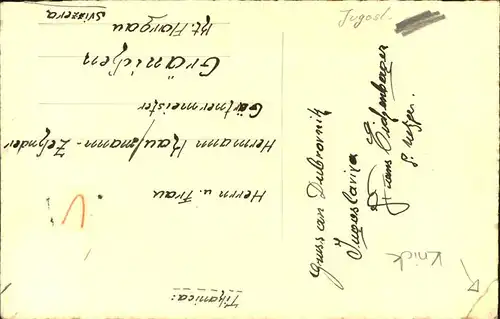 Tiskanica:
Herrn u. Frau
Hermann Kaufmann-Zehnder
Gärtnermeister
Gränichen
Kt. Aargau
Svizzera
Gruss aus Dubrovnik
Jugoslavija
Jugosl.
Knick